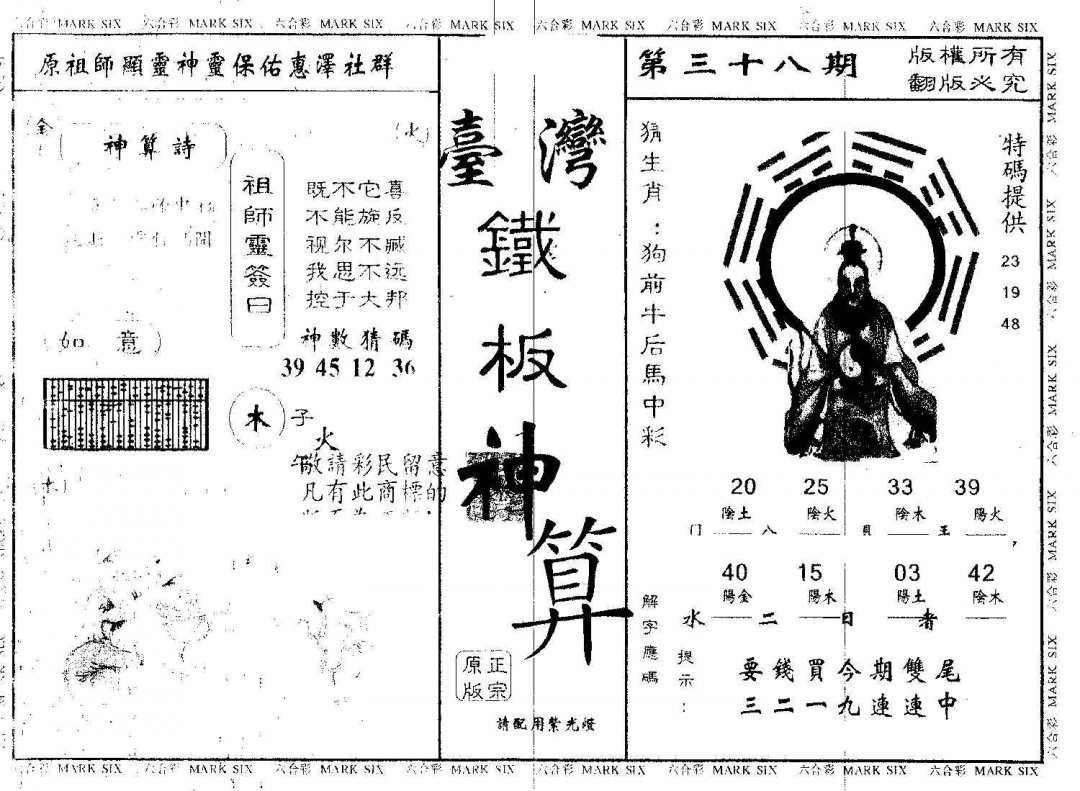 六合彩 MARK SIX 六合彩 MARK SIX 六合彩 MARK SIX 六合彩 MARK SIX 六合彩 MARK SIX 六合彩 MARK SIX 六合彩 MARK SIX 六合彩 MARK SIX
原祖師顯靈神靈保佑惠澤社群
金
火
神算詩
祖師靈簽曰
既不它喜
不能旋反
视尔不臧
我思不远
控于大邦
神數猜碼
39 45 12 36
如意
木
子
火
午
敬請彩民留意
凡有此商標的
臺灣
鐵板神算
正宗
原版
請配用紫光燈
第三十八期
版權所有
翻版必究
猜生肖：狗前牛后馬中彩
特碼提供
23
19
48
20 25 33 39
陰土 陰火 陰木 陽火
门 八 貝 王 ，
40 15 03 42
陽金 陽木 陽土 陰木
水 二 日 者
解字應碼
提示：
要錢買今期雙尾
三二一九連連中
六合彩 MARK SIX 六合彩 MARK SIX 六合彩 MARK SIX 六合彩 MARK SIX 六合彩 MARK SIX
六合彩 MARK SIX 六合彩 MARK SIX 六合彩 MARK SIX 六合彩 MARK SIX 六合彩 MARK SIX 六合彩 MARK SIX 六合彩 MARK SIX 六合彩 MARK SIX